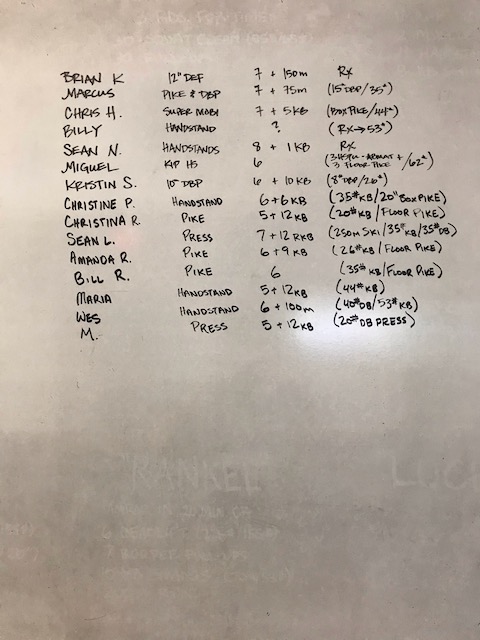 BRIAN K 12" DEF 7 + 150m Rx
MARCUS PIKE & DBP 7 + 75m (15#DBP/35#)
CHRIS H. SUPER MOBI 7 + 5KB (BOX PIKE/44#)
BILLY HANDSTAND ? (RX→53#)
SEAN N. HANDSTANDS 8 + 1 KB Rx
MIGUEL KIP HS 6 (3 HSPU + 3 FLOOR PIKE /62#)
KRISTIN S. 10" DBP 6 + 10 KB (8#DBP/26#)
CHRISTINE P. HANDSTAND 6+6KB (35#KB/20" BOX PIKE)
CHRISTINA R. PIKE 5+12KB (20#KB/FLOOR PIKE)
SEAN L. PRESS 7+12 RKB (250m SKI/35#KB/35#DB)
AMANDA R. PIKE 6+9 KB (26#KB/FLOOR PIKE)
BILL R. PIKE 6 (35#KB/FLOOR PIKE)
MARIA HANDSTAND 5+12KB (44#KB)
WES HANDSTAND 6+100m (40#DB/53#KB)
M. PRESS 5+12KB (20#DB PRESS)
"RANKEL"